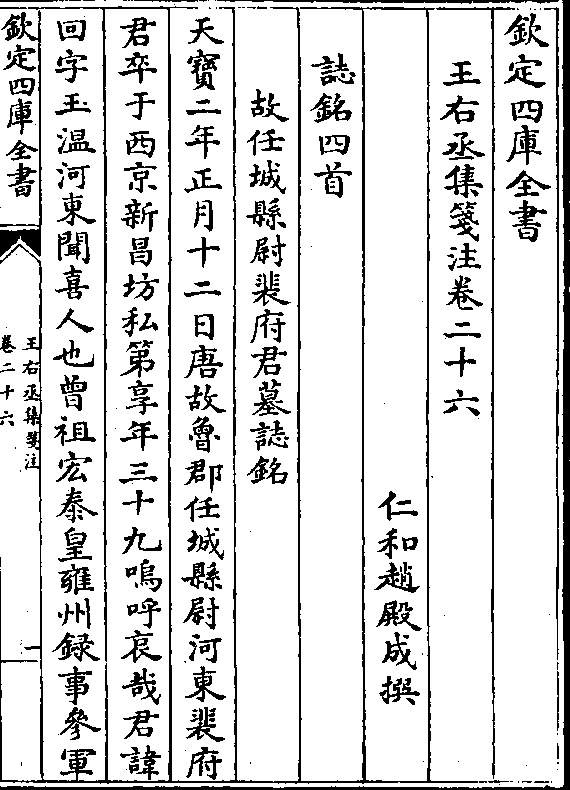 欽定四庫全書
王右丞集箋注卷二十六
仁和趙殿成撰
誌銘四首
故任城縣尉裴府君墓誌銘
天寶二年正月十二日唐故魯郡任城縣尉河東裴府
君卒于西京新昌坊私第享年三十九嗚呼哀哉君諱
回字玉温河東聞喜人也曾祖宏泰皇雍州録事參軍
欽定四庫全書
王右丞集箋注
卷二十六
一